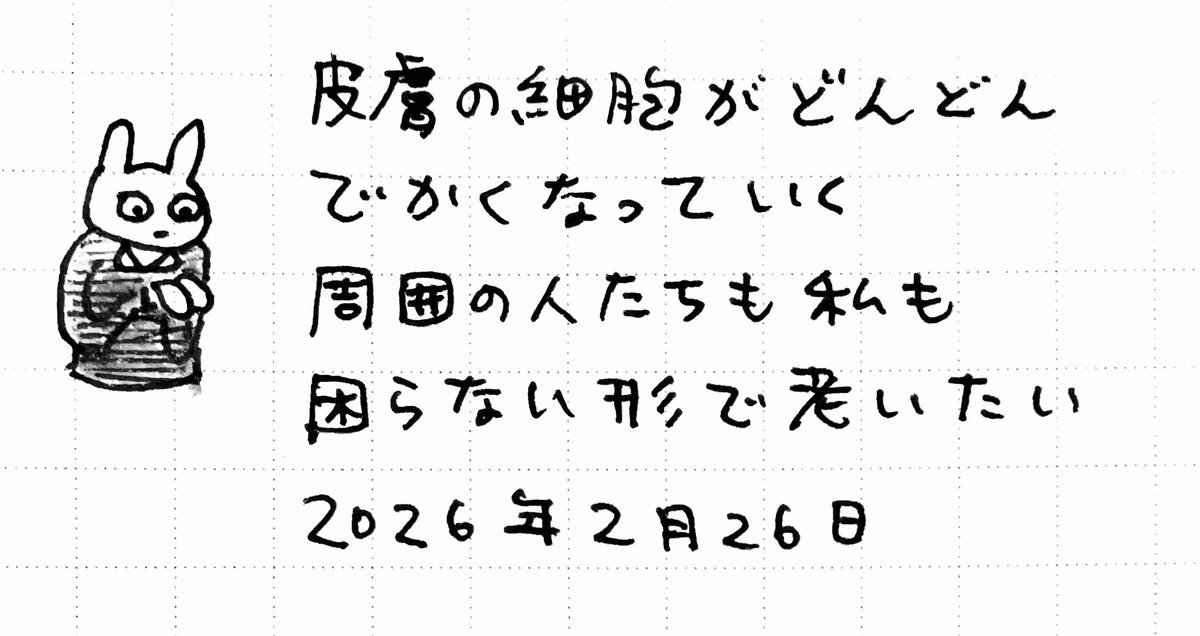 皮膚の細胞がどんどん
でかくなっていく
周囲の人たちも私も
困らない形で老いたい
2026年2月26日